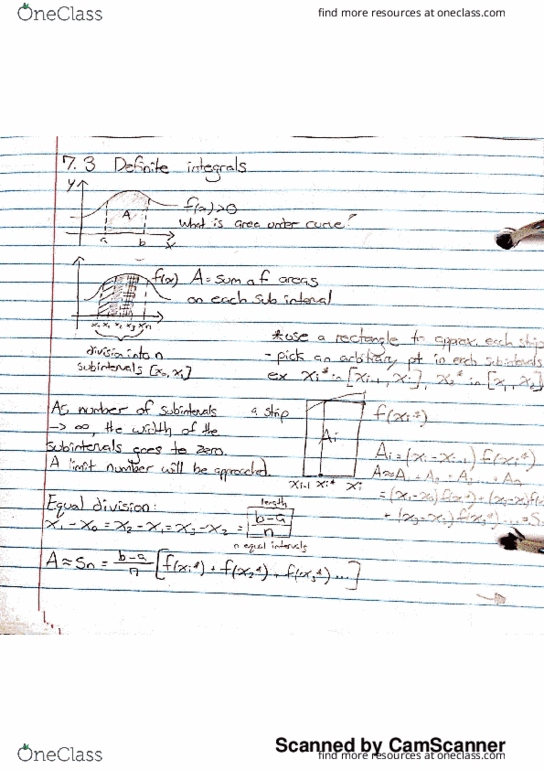 OneClass
find more resources at oneclass.com
7.3 Definite integrals
y
f(x)>0
A
What is area under curve?
a b x
f(x) A = sum of areas
on each sub interval
division into n
subintervals [x₀, x₁]
*use a rectangle to approx. each strip
- pick an arbitrary pt in each subintervals
ex x₁* in [xᵢ₋₁, xᵢ], x₂* in [x₁, x₂]
As number of subintervals
→ ∞, the width of the
subintervals goes to zero.
A limit number will be approached.
a strip
Ai
xᵢ₋₁ xᵢ* xᵢ
f(xᵢ*)
Aᵢ = (xᵢ - xᵢ₋₁) f(xᵢ*)
Equal division:
x₁ - x₀ = x₂ - x₁ = x₃ - x₂ =
length
b-a
n
n equal intervals
A ≈ Sn = b-a/n [f(x₁*) + f(x₂*) + f(x₃*) ...]
Scanned by CamScanner
OneClass
find more resources at oneclass.com